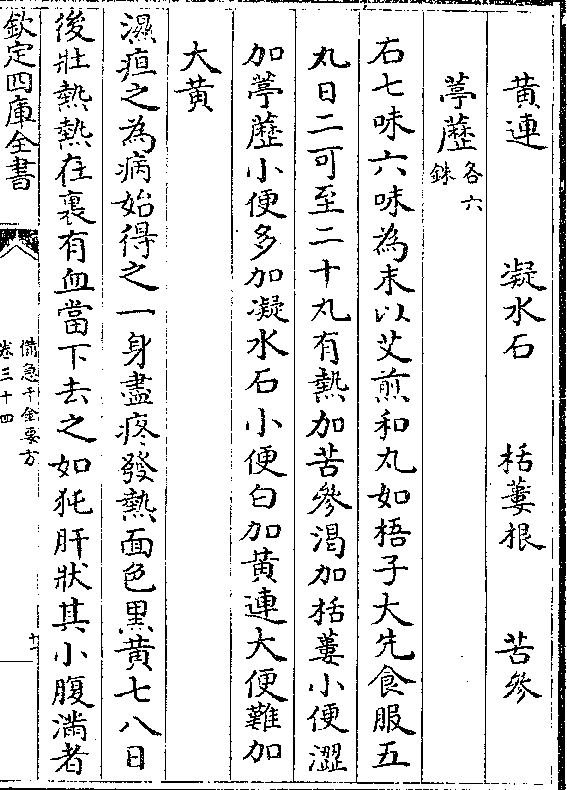 黄連　凝水石　栝蔞根　苦參
葶藶各六銖
右七味六味為末以艾煎和丸如梧子大先食服五
丸日二可至二十丸有熱加苦參渴加栝蔞小便澀
加葶藶小便多加凝水石小便白加黄連大便難加
大黄
濕疸之為病始得之一身盡疼發熱面色黒黄七八日
後壯熱熱在裏有血當下去之如㹠肝狀其小腹滿者
欽定四庫全書
備急千金要方
卷三十四